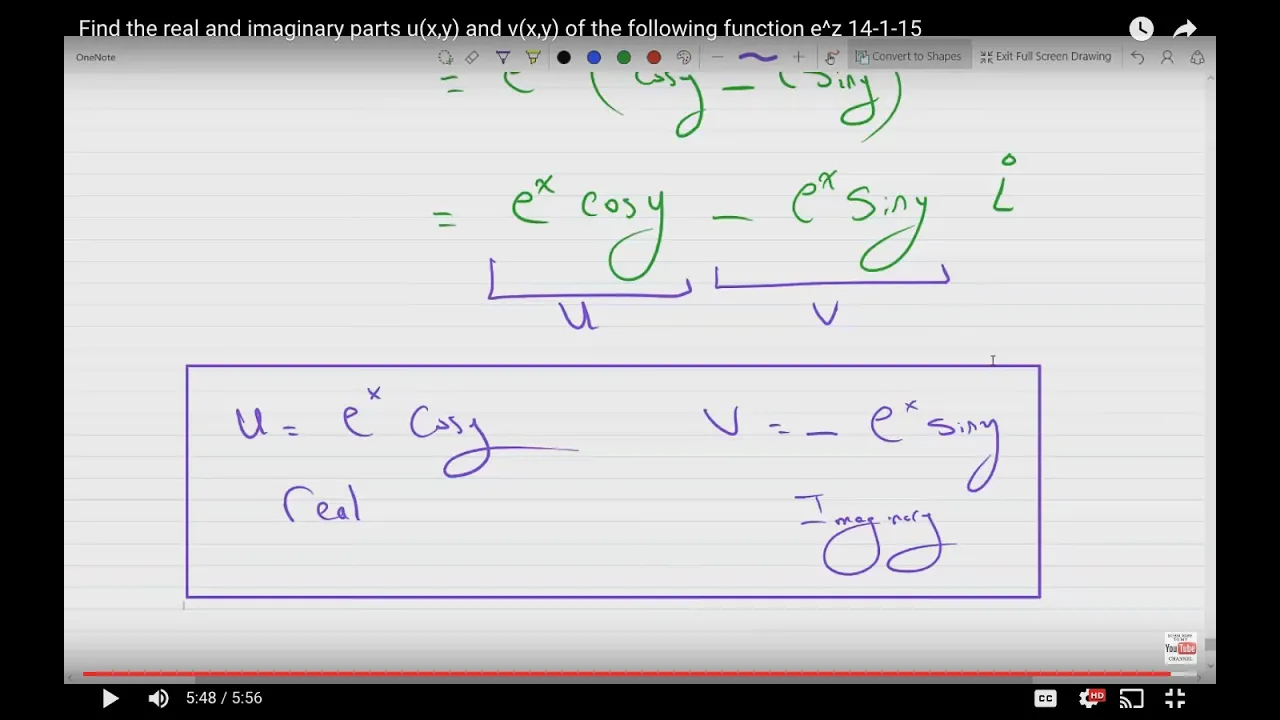 Find the real and imaginary parts u(x,y) and v(x,y) of the following function e^z 14-1-15
OneNote
Convert to Shapes
Exit Full Screen Drawing
= e ( cosy − i siny )
= e^x cosy − e^x siny i
u v
u = e^x cosy v = − e^x siny
real Imaginary
SUBSCRIBE
TO MY
YouTube
CHANNEL
5:48 / 5:56
CC HD